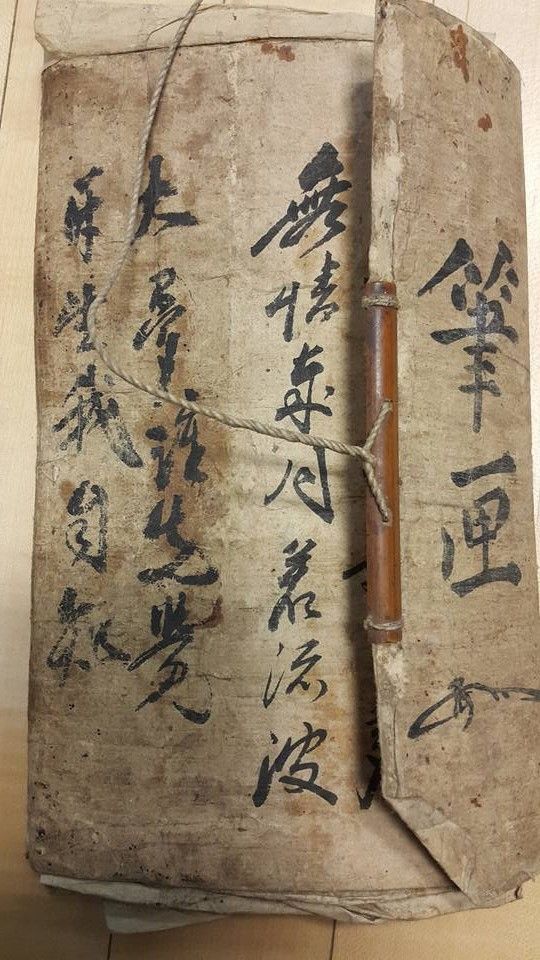 筆匣
無情歲月若流波
大夢誰先覺
平生我自知